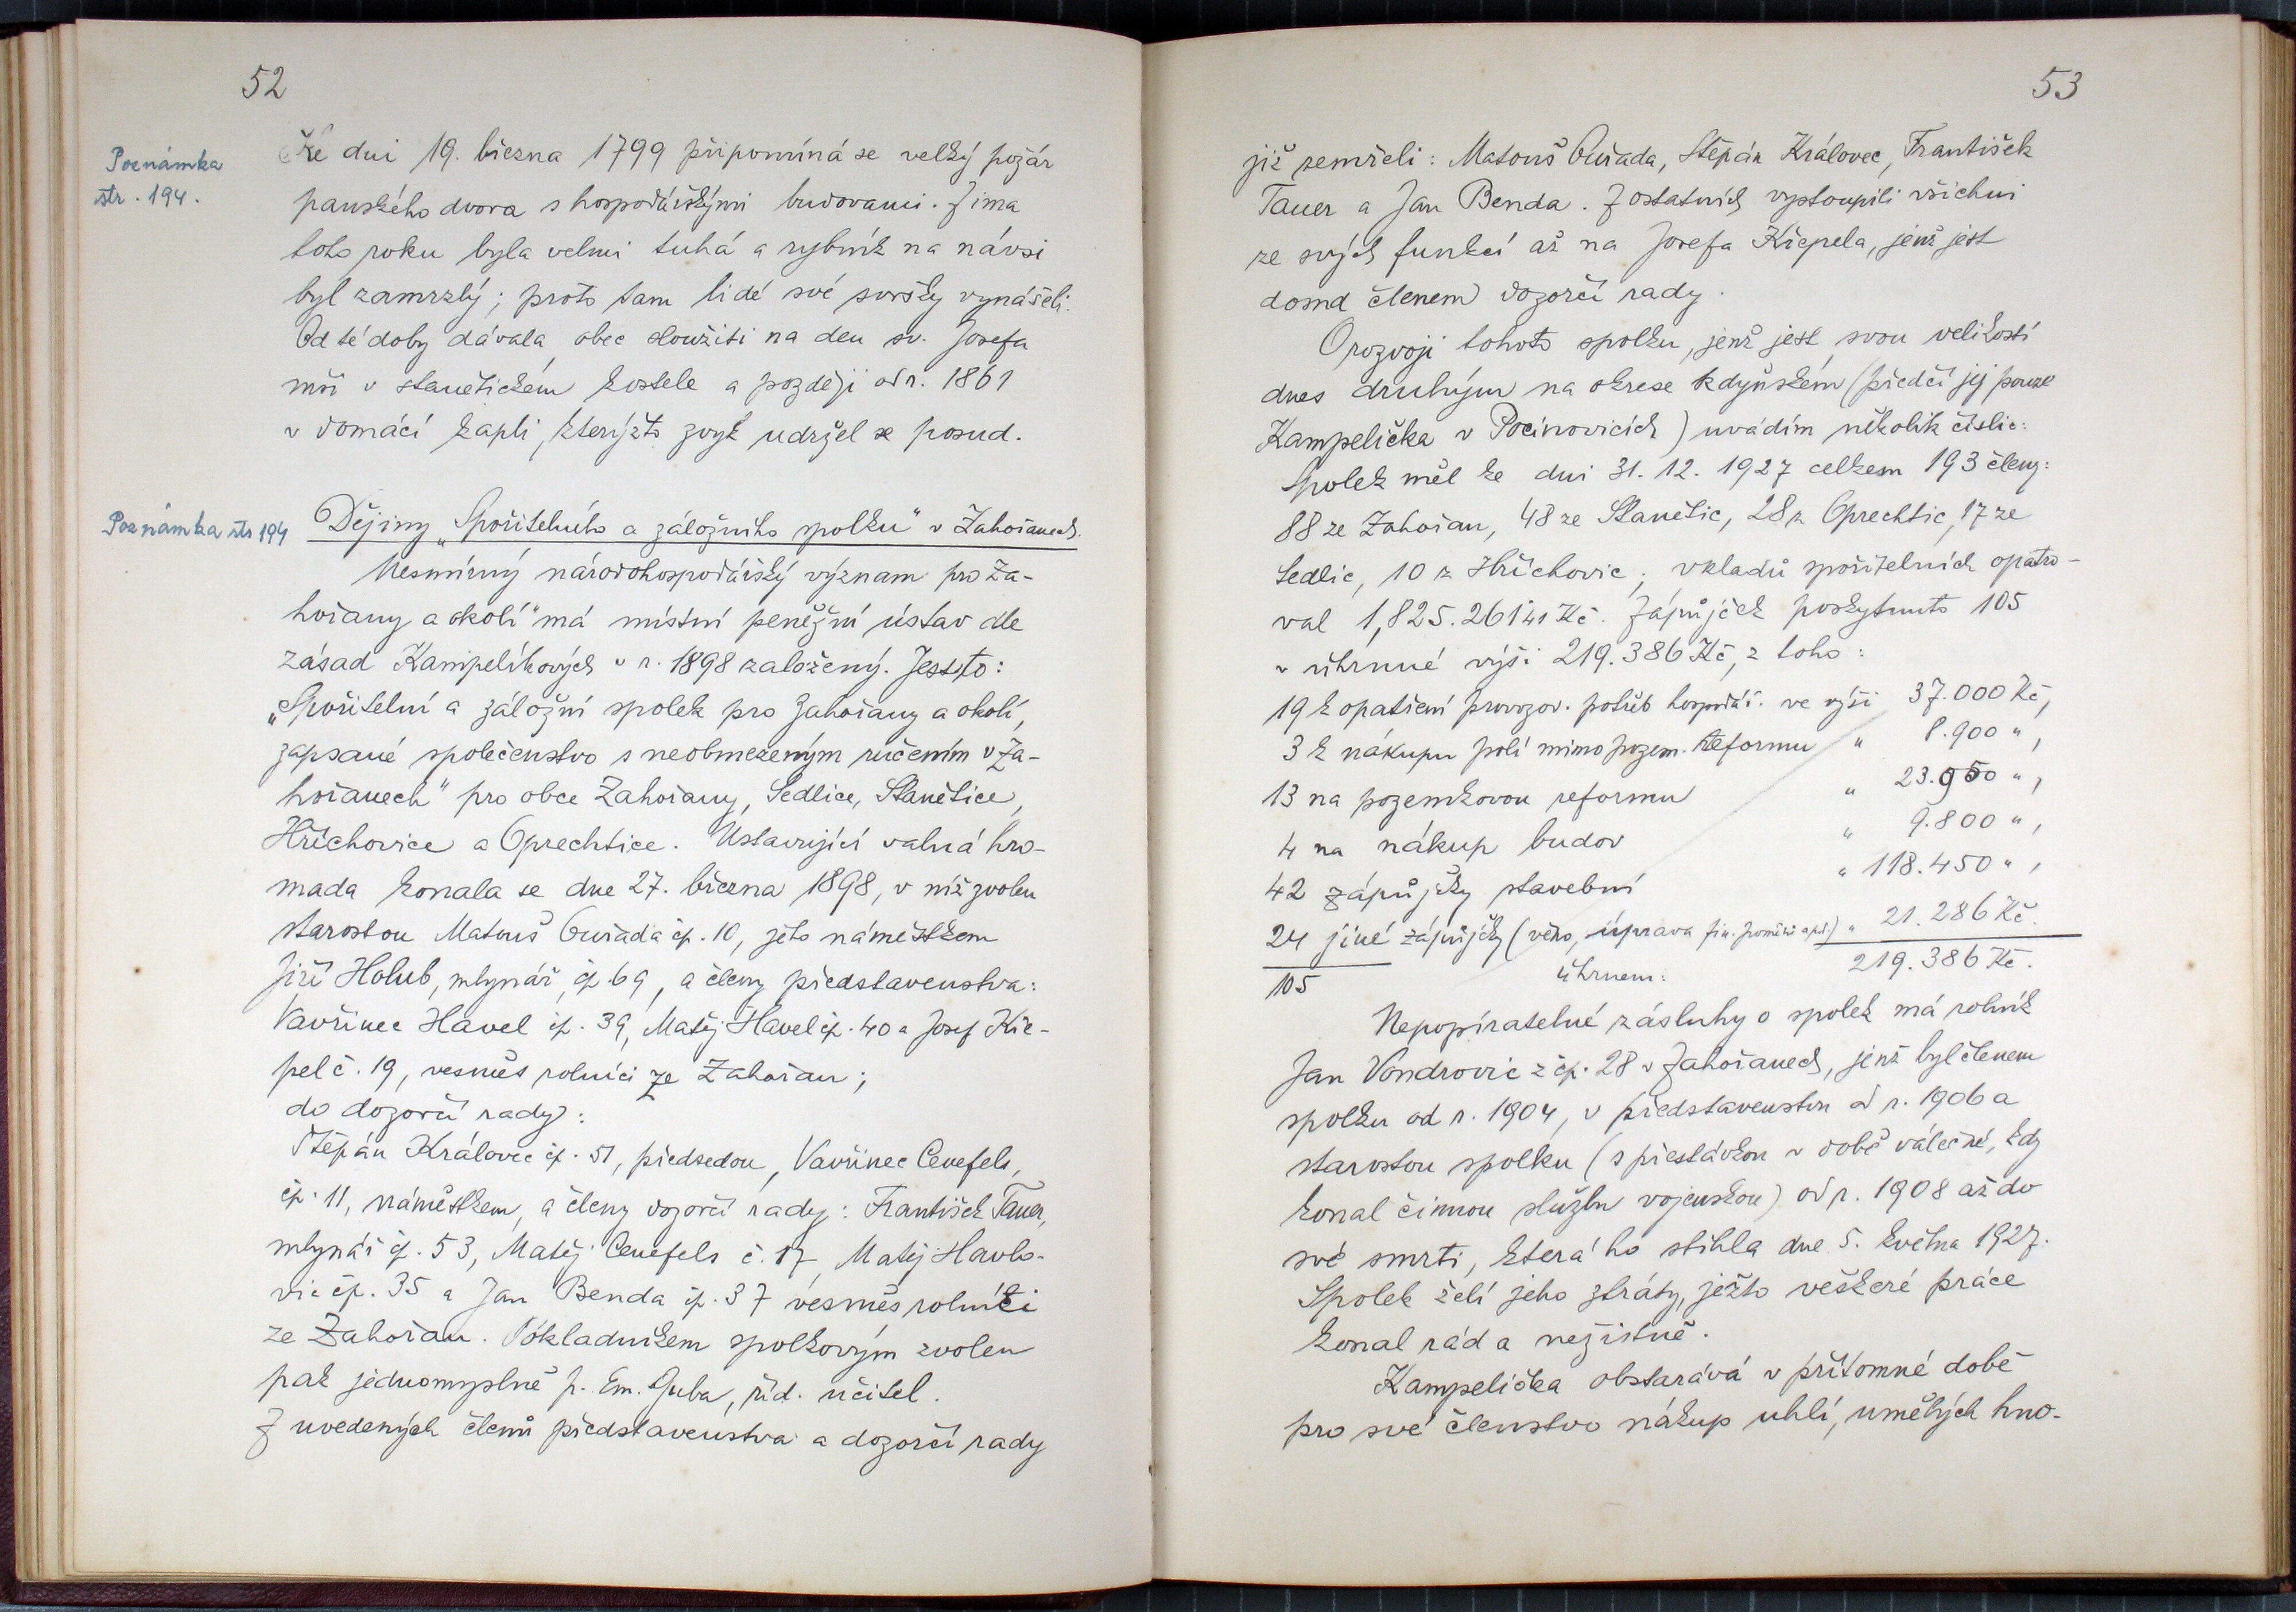 52
Poznámka
str. 194.
Ke dni 19. března 1799 připomíná se velký požár
panského dvora s hospodářskými budovami. Zima
toho roku byla velmi tuhá a rybník na návsi
byl zamrzlý; proto tam lidé své svršky vynášeli.
Od té doby dávala obec sloužiti na den sv. Josefa
mši v stanětickém kostele a později od r. 1861
v domácí kapli, kterýžto zvyk udržel se posud.
Poznámka str 194
Dějiny „Spořitelního a záložního spolku" v Zahořanech.
Nesmírný národohospodářský význam pro Za-
hořany a okolí" má místní peněžní ústav dle
zásad Kampelíkových v r. 1898 založený. Jest to:
„Spořitelní a záložní spolek pro Zahořany a okolí,
zapsané společenstvo s neobmezeným ručením v Za-
hořanech" pro obce Zahořany, Sedlice, Stanětice,
Hříchovice a Oprechtice. Ustavující valná hro-
mada konala se dne 27. března 1898, v níž zvolen
starostou Matouš Ouřada čp. 10, jeho náměstkem
Jiří Holub, mlynář, čp 69, a členy představenstva:
Vavřinec Havel čp. 39, Matěj Havel čp. 40 a Josef Kře-
pel č. 19, vesměs rolníci ze Zahořan;
do dozorčí rady:
Štěpán Královec čp. 51, předsedou, Vavřinec Cenefels,
čp. 11, náměstkem, a členy dozorčí rady: František Tauer,
mlynář čp. 53, Matěj Cenefels č. 17, Matěj Havlo-
vic čp. 35 a Jan Benda čp. 37 vesměs rolníci
ze Zahořan. Pokladníkem spolkovým zvolen
pak jednomyslně p. Em. Guba, říd. učitel.
Z uvedených členů představenstva a dozorčí rady
53
již zemřeli: Matouš Ouřada, Štěpán Královec, František
Tauer a Jan Benda. Z ostatních vystoupili všichni
ze svých funkcí až na Josefa Křepela, jenž jest
dosud členem dozorčí rady.
O rozvoji tohoto spolku, jenž jest svou velikostí
dnes druhým na okrese kdyňském (předčí jej pouze
Kampelička v Pocinovicích) uvádím několik číslic:
Spolek měl ke dni 31. 12. 1927 celkem 193 členy:
88 ze Zahořan, 48 ze Stanětic, 28 z Oprechtic, 17 ze
Sedlic, 10 z Hříchovic; vkladů spořitelních opatro-
val 1,825.261.41 Kč. Zápůjček poskytnuto 105
v úhrnné výši 219.386 Kč, z toho:
19 k opatření provozov. potřeb hospodář. ve výši 37.000 Kč,
3 k nákupu polí mimo pozem. reformu " 8.900 ",
13 na pozemkovou reformu " 23.950 ",
4 na nákup budov " 9.800 ",
42 zápůjčky stavební " 118.450 ",
24 jiné zápůjčky (věno, úprava fin. poměrů apd.) " 21.286 Kč.
105 úhrnem: 219.386 Kč.
Nepopíratelné zásluhy o spolek má rolník
Jan Vondrovic z čp. 28 v Zahořanech, jenž byl členem
spolku od r. 1904, v představenstvu od r. 1906 a
starostou spolku (s přestávkou v době válečné, kdy
konal činnou službu vojenskou) od r. 1908 až do
své smrti, která ho stihla dne 5. května 1927.
Spolek želí jeho ztráty, ježto veškeré práce
konal rád a nezištně.
Kampelička obstarává v přítomné době
pro své členstvo nákup uhlí, umělých hno-